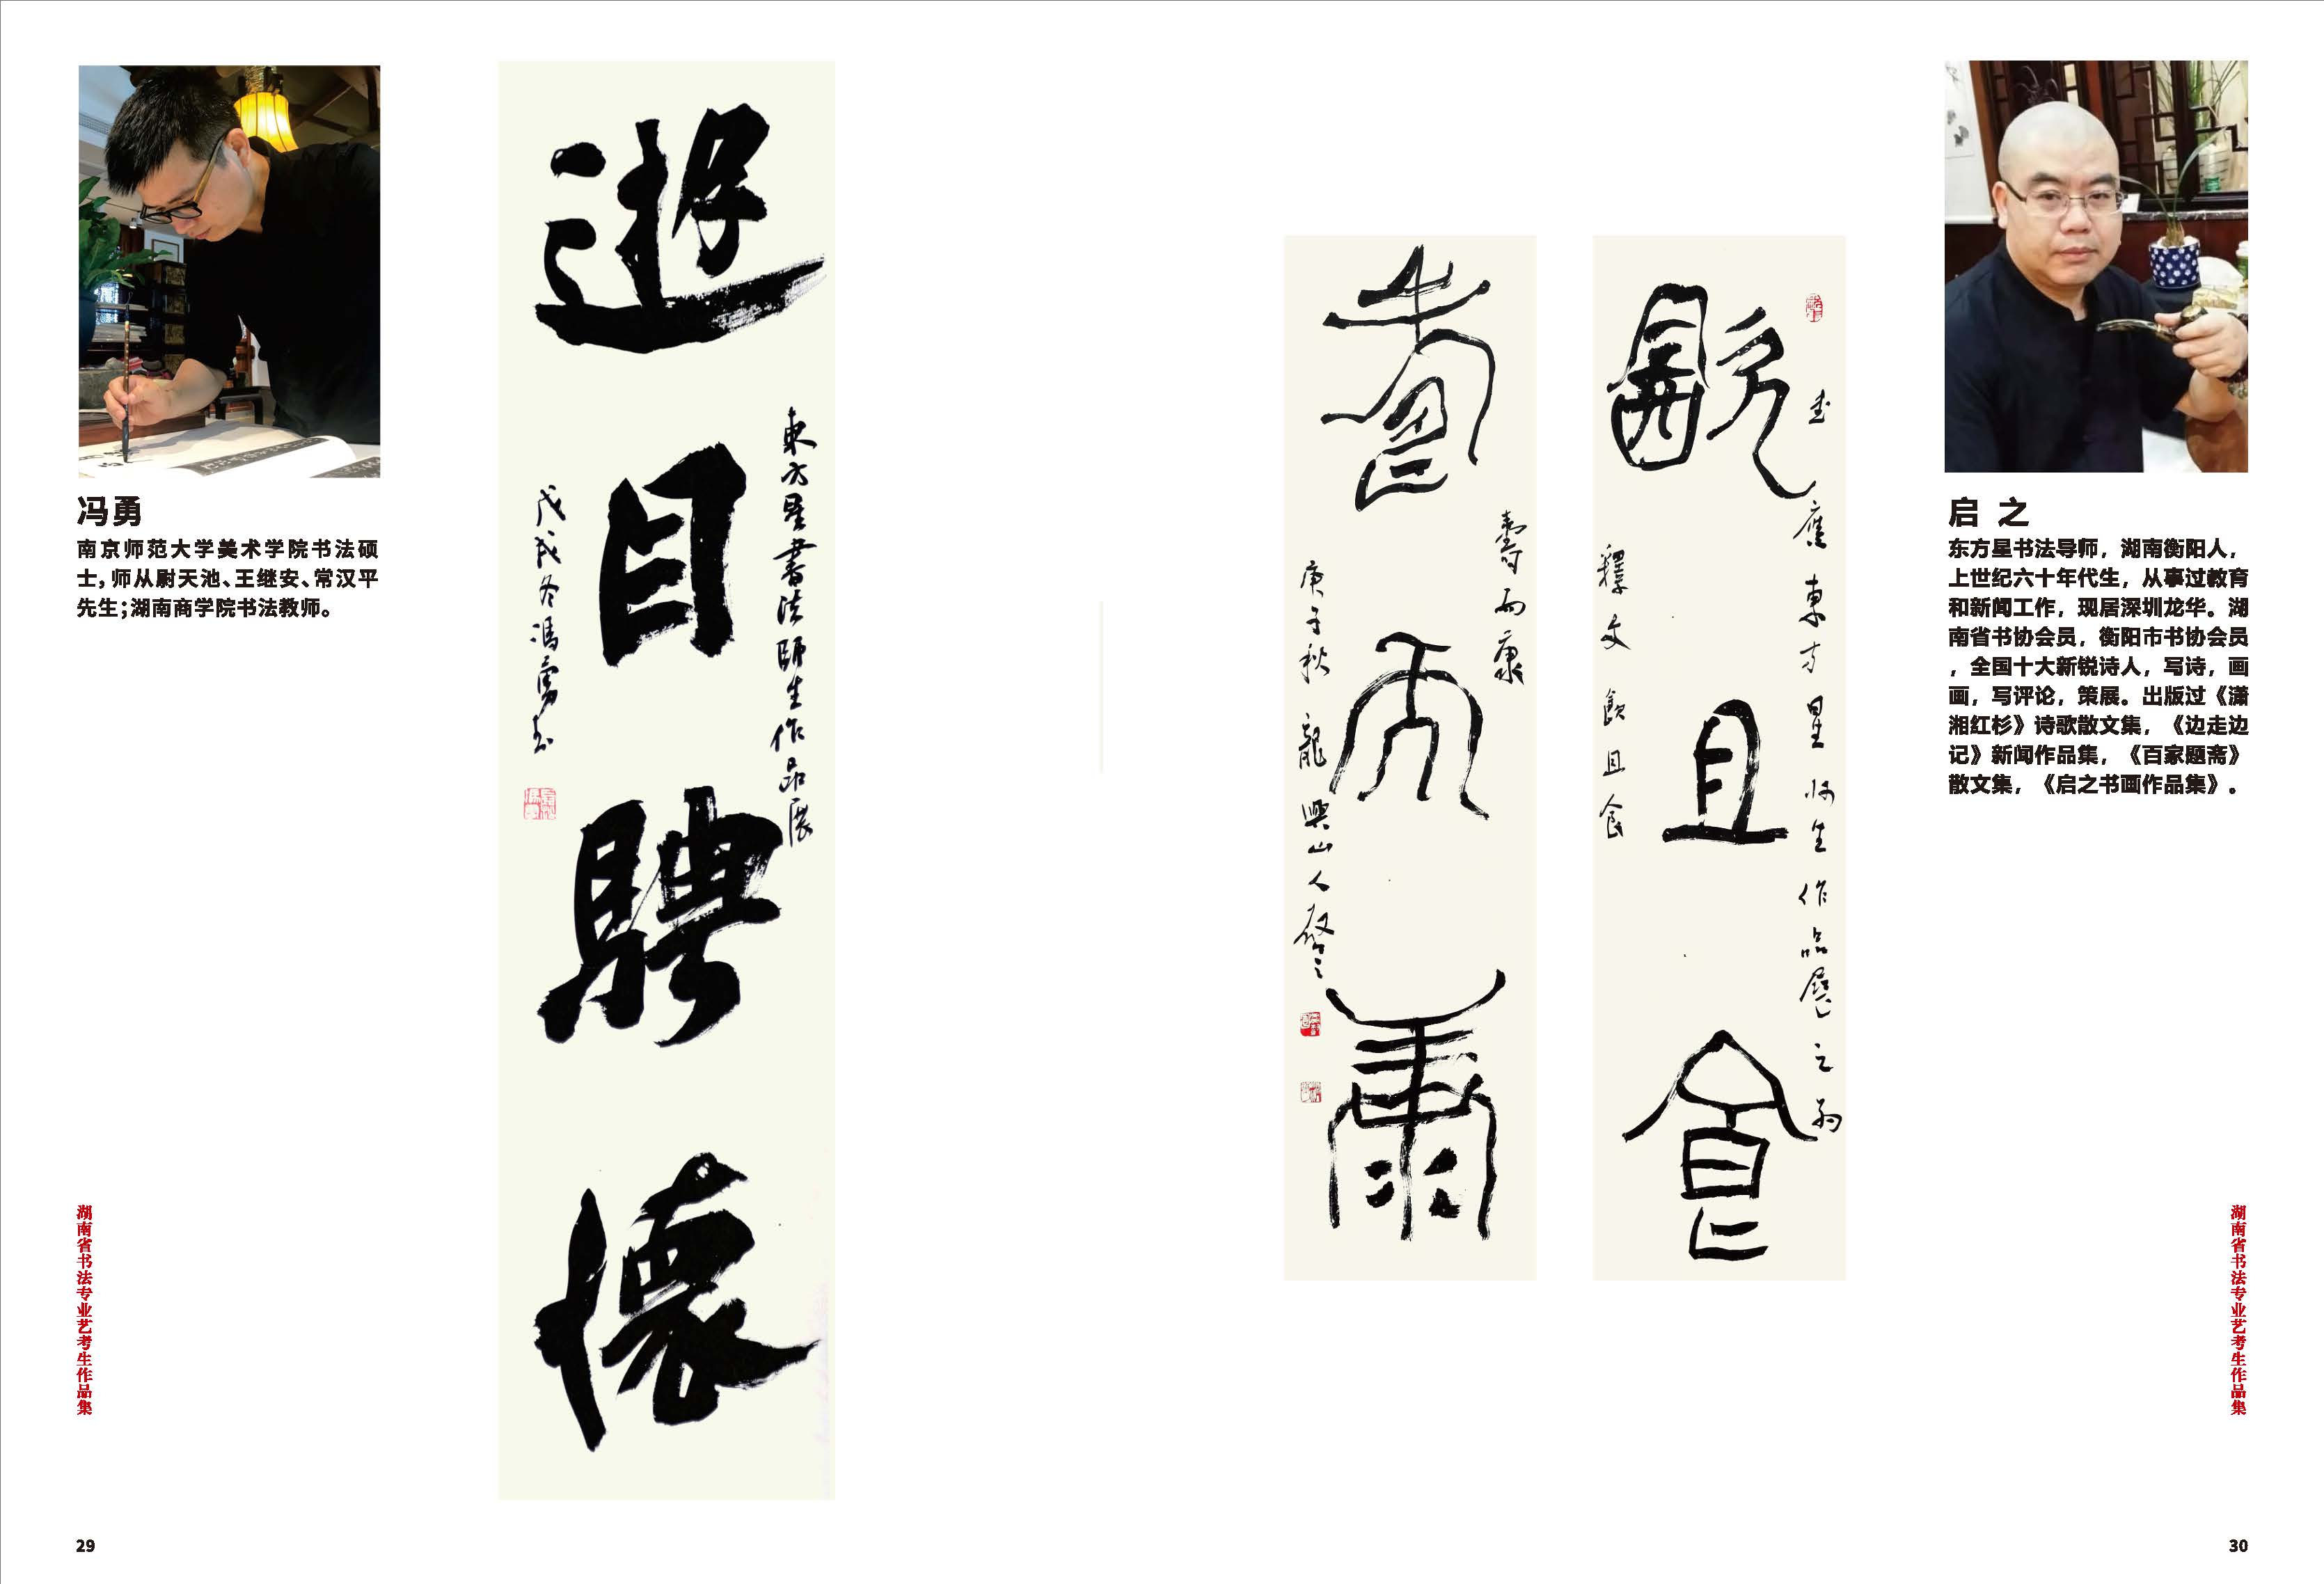 冯勇
南京师范大学美术学院书法硕
士，师从尉天池、王继安、常汉平
先生；湖南商学院书法教师。
遊目骋懷
東方星書法師生作品展
戊戌冬馮勇书
湖南省书法专业艺考生作品集
29
启 之
东方星书法导师，湖南衡阳人，
上世纪六十年代生，从事过教育
和新闻工作，现居深圳龙华。湖
南省书协会员，衡阳市书协会员
，全国十大新锐诗人，写诗，画
画，写评论，策展。出版过《潇
湘红杉》诗歌散文集，《边走边
记》新闻作品集，《百家题斋》
散文集，《启之书画作品集》。
飲且食
書應東方星师生作品展之約
釋文 飲且食
壽而康
壽而康
庚子秋 龍興山人啓之
湖南省书法专业艺考生作品集
30